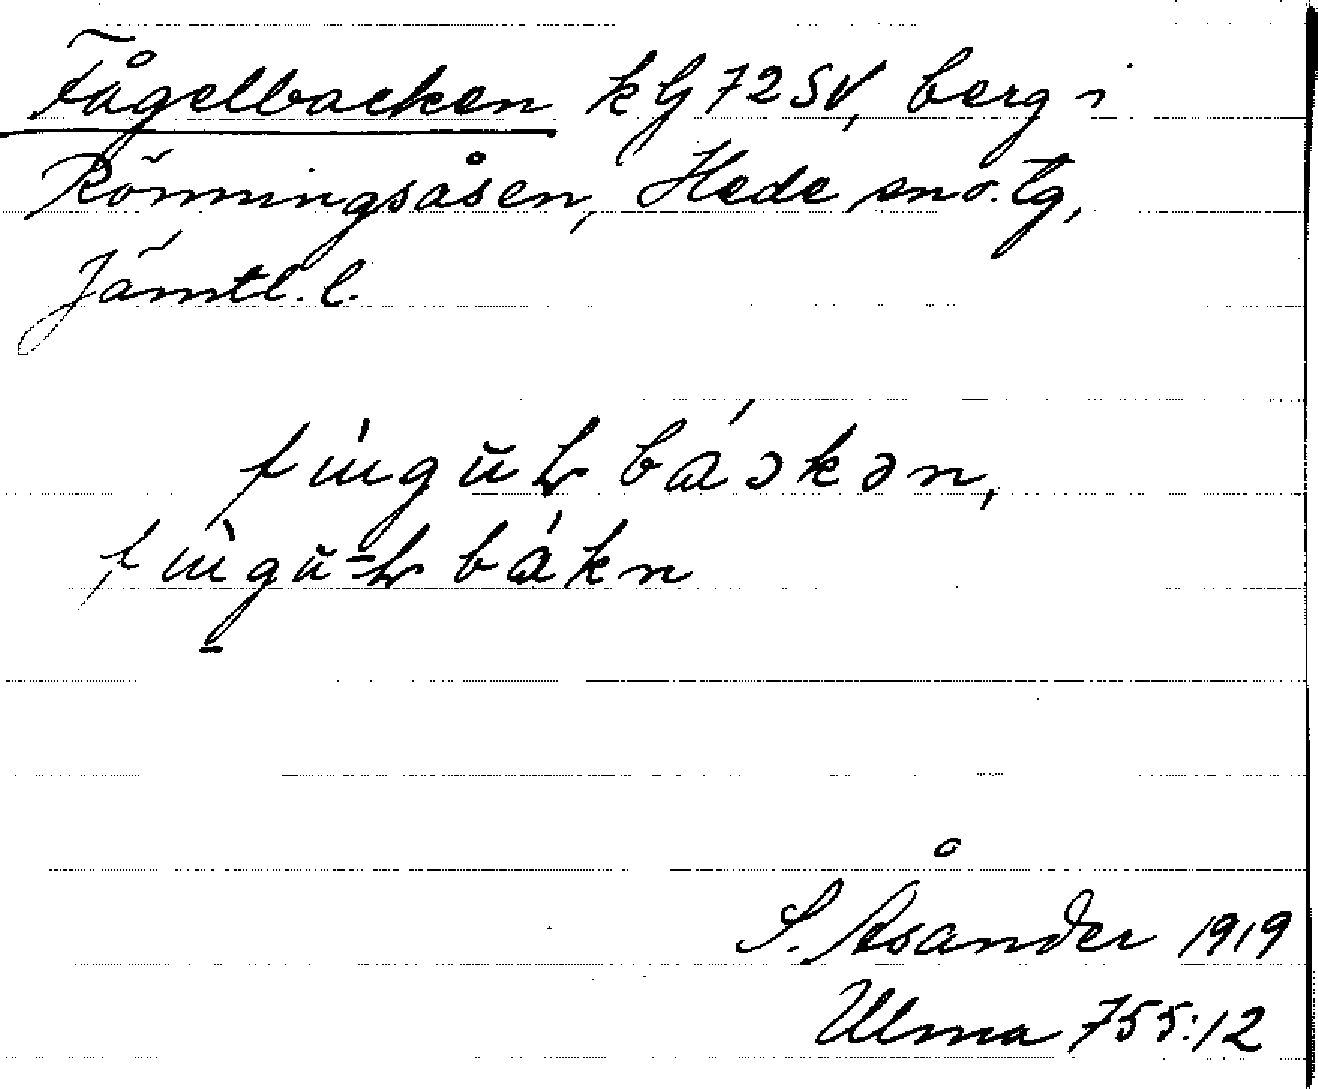 Fågelbacken kG72SV, berg i
Rönningsåsen, Hede sn o. tg,
Jämtl. l.
bákn
S. Åsander 1919
Ulma 755:12